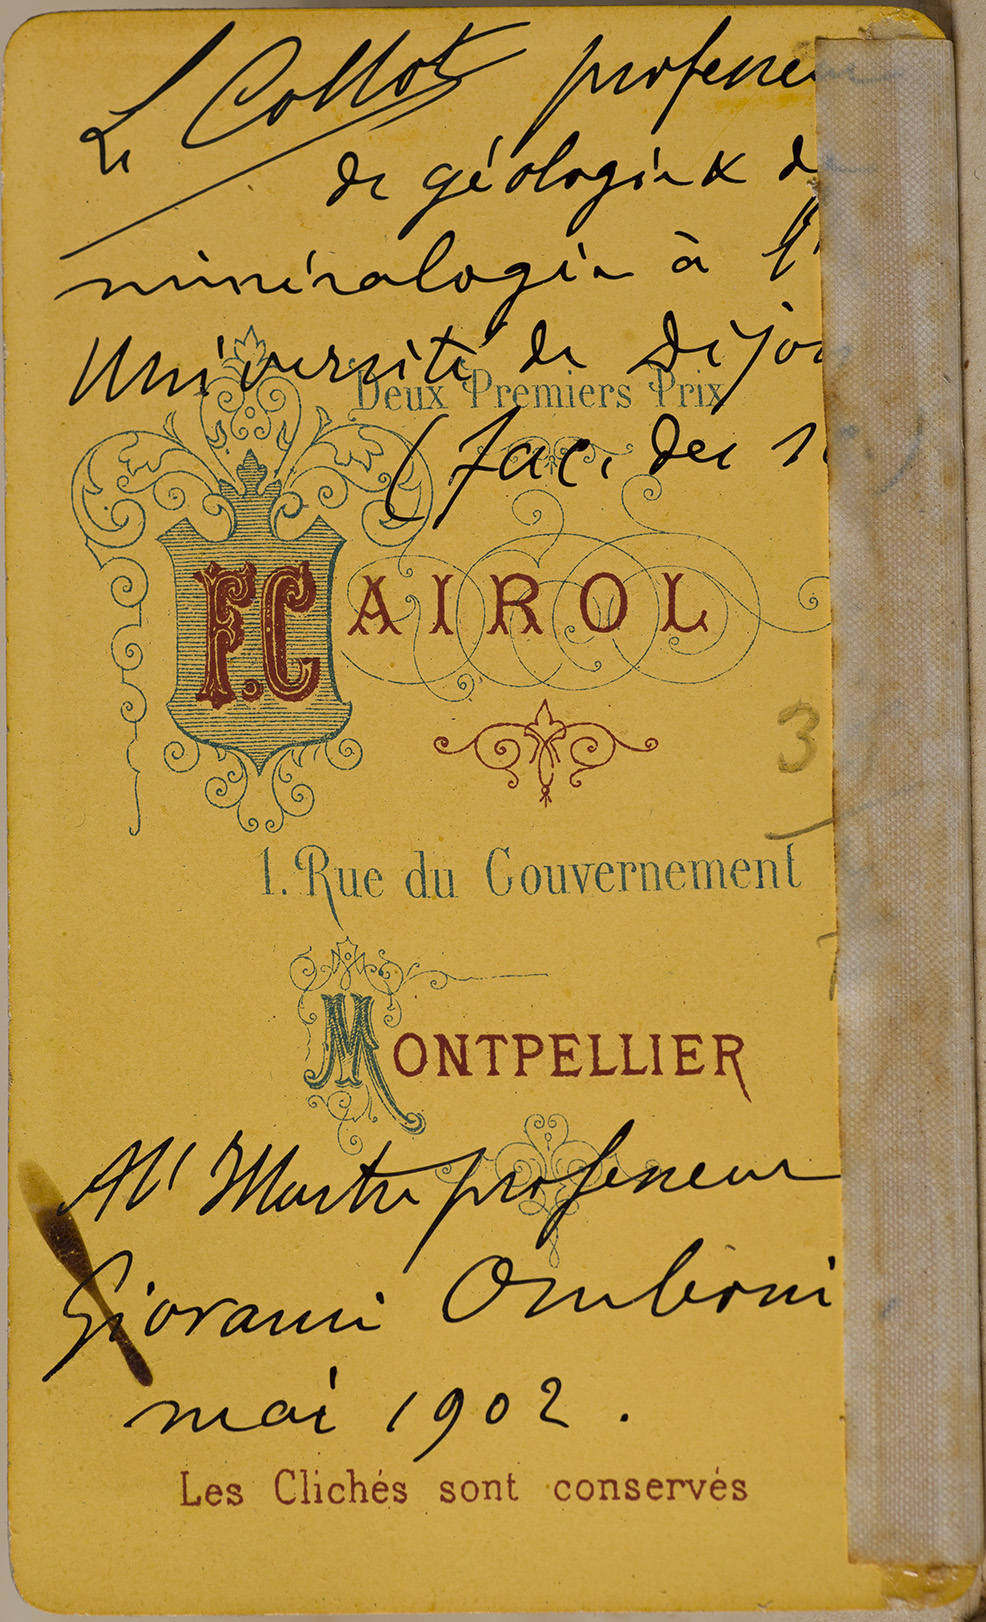 L Collot professeu
de géologie & d
minéralogie à l'
Université de Dijon
Deux Premiers Prix
(fac. des
F. CAIROL
3
1. Rue du Gouvernement
MONTPELLIER
Al professeur
Giovanni Omboni
mai 1902.
Les Clichés sont conservés